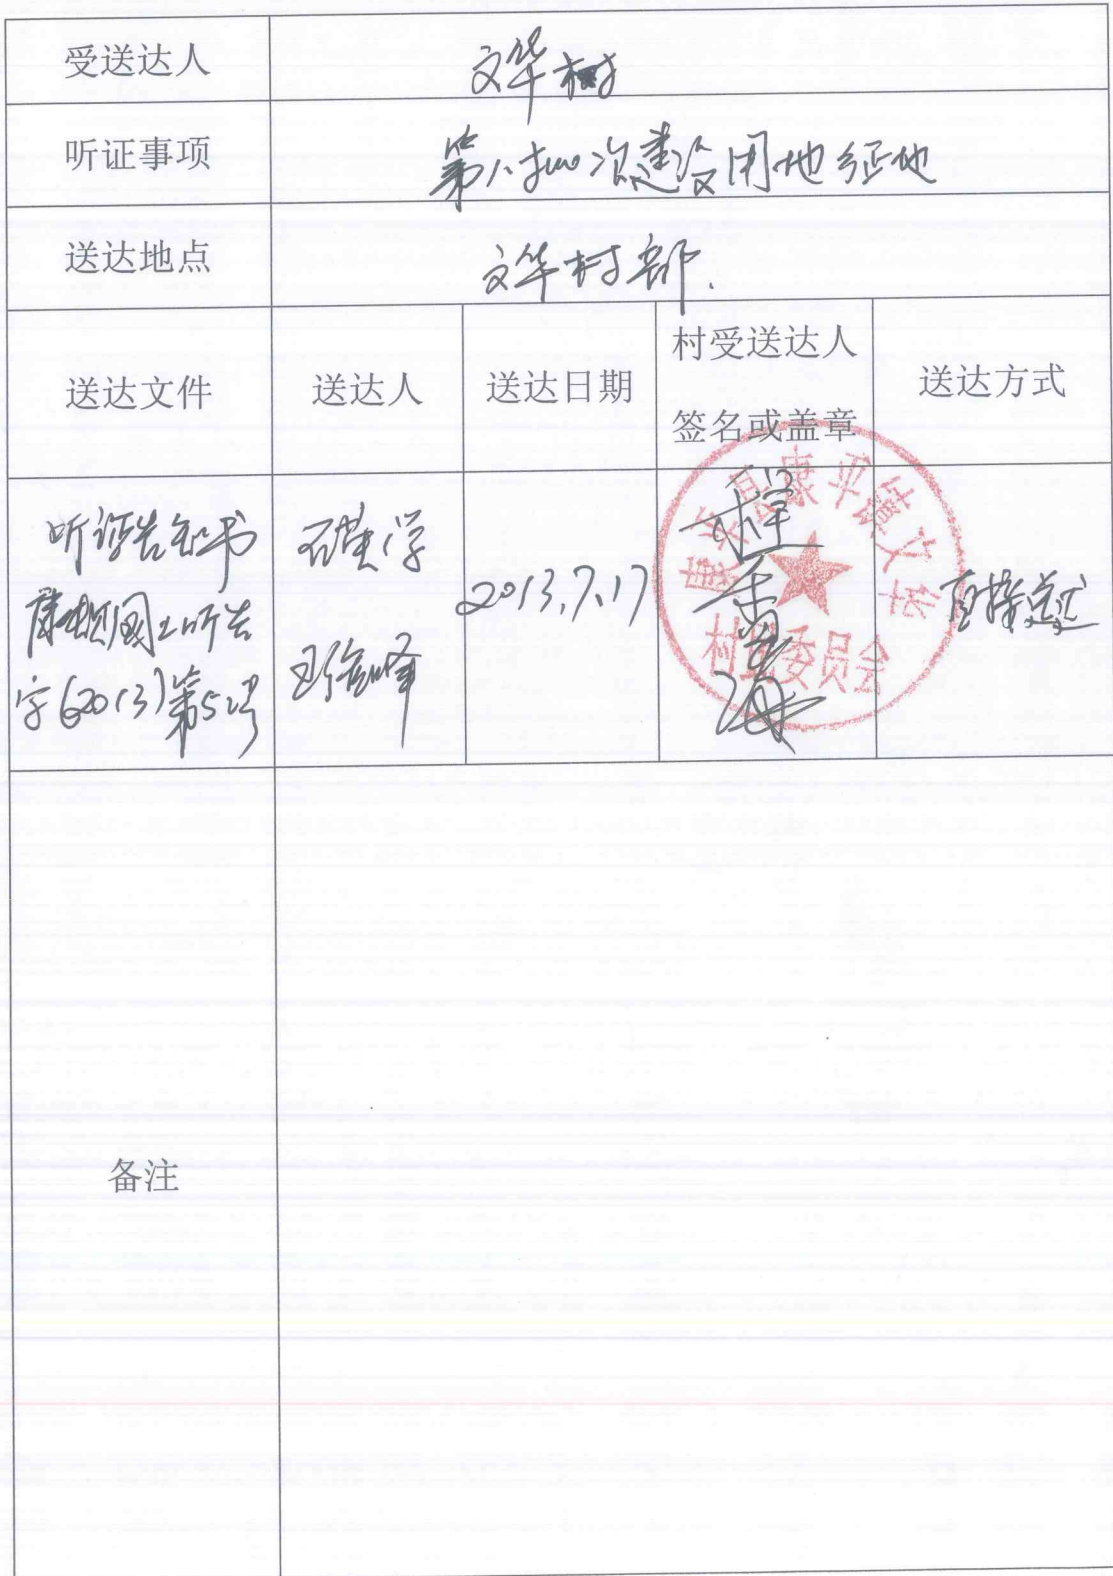 受送达人
文华村
听证事项
第八批次建设用地征地
送达地点
文华村部.
送达文件
送达人
送达日期
村受送达人
签名或盖章
送达方式
听证告知书
康 国土听告
字(2013)第52号
2013.7.17
康平县康平镇文华
村民委员会
直接送达
备注